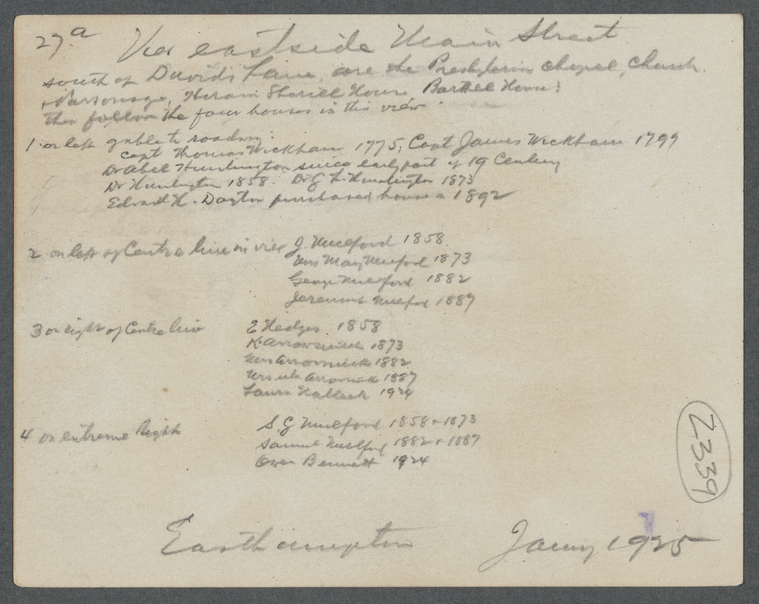 27.a View eastside Main Street
south of Davids Lane, are the Presbyterian chapel, Church.
Parsonage, Hiram Sherill House, Barthel House:
then follow the four houses in this view
1. on left gable to roadway:
Capt Thomas Wickham 1775; Capt James Wickham 1799
Dr Abel Huntington since early part of 19 Century
Dr Huntington 1858. Dr G L Huntington 1873
Edward H. Dayton purchased house in 1892
2 on left of Centre line in view J. Mulford 1858
Mrs Mary Mulford 1873
George Mulford 1882
Jeremiah Mulford 1887
3 on right of Centre line E Hedges. 1858
K. Arrowsmith 1873
Mrs Arrowsmith 1882
Arrowsmith 1887
Laura Halleck 1924
4 on extreme Right S. G Mulford 1858 + 1873
Samuel Mulford 1882 + 1887
Owen Bennett 1924
2339
Easthampton Jany 1925